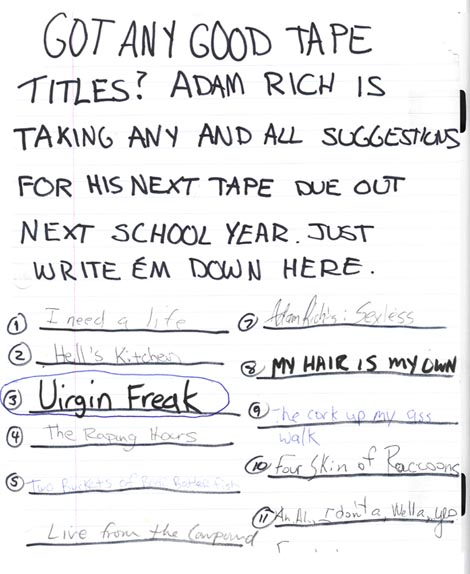 GOT ANY GOOD TAPE
TITLES? ADAM RICH IS
TAKING ANY AND ALL SUGGESTIONS
FOR HIS NEXT TAPE DUE OUT
NEXT SCHOOL YEAR. JUST
WRITE EM DOWN HERE.
① I need a life
② Hell's Kitchen
③ Virgin Freak
④ The Raping Hours
⑤ Two Buckets of
Live from the Compound
⑦ Adam Rich's: Sexless
⑧ MY HAIR IS MY OWN
⑨ The cork up my ass
walk
⑩ Four Skin of Raccoons
⑪ I don't a, Wella,